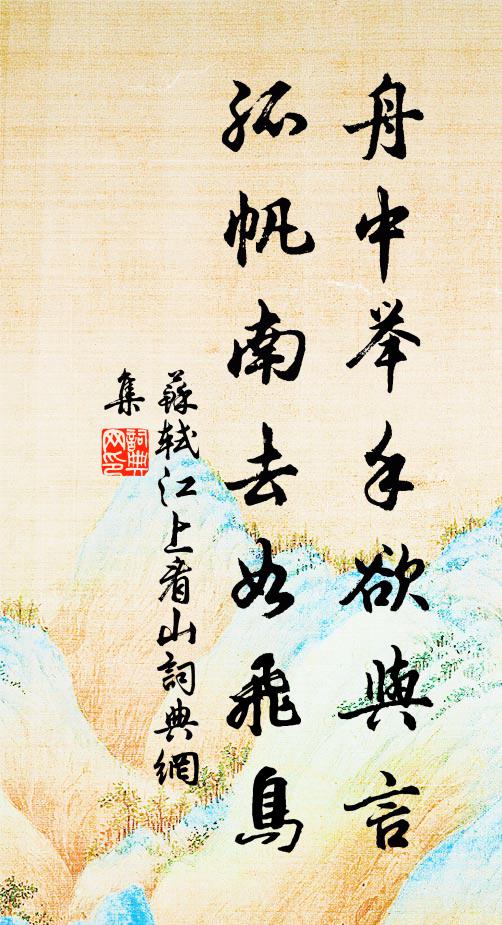 舟中举手欲與言
孤帆南去如飛鳥
蘇軾江上看山詞典網
集
詞典
网印